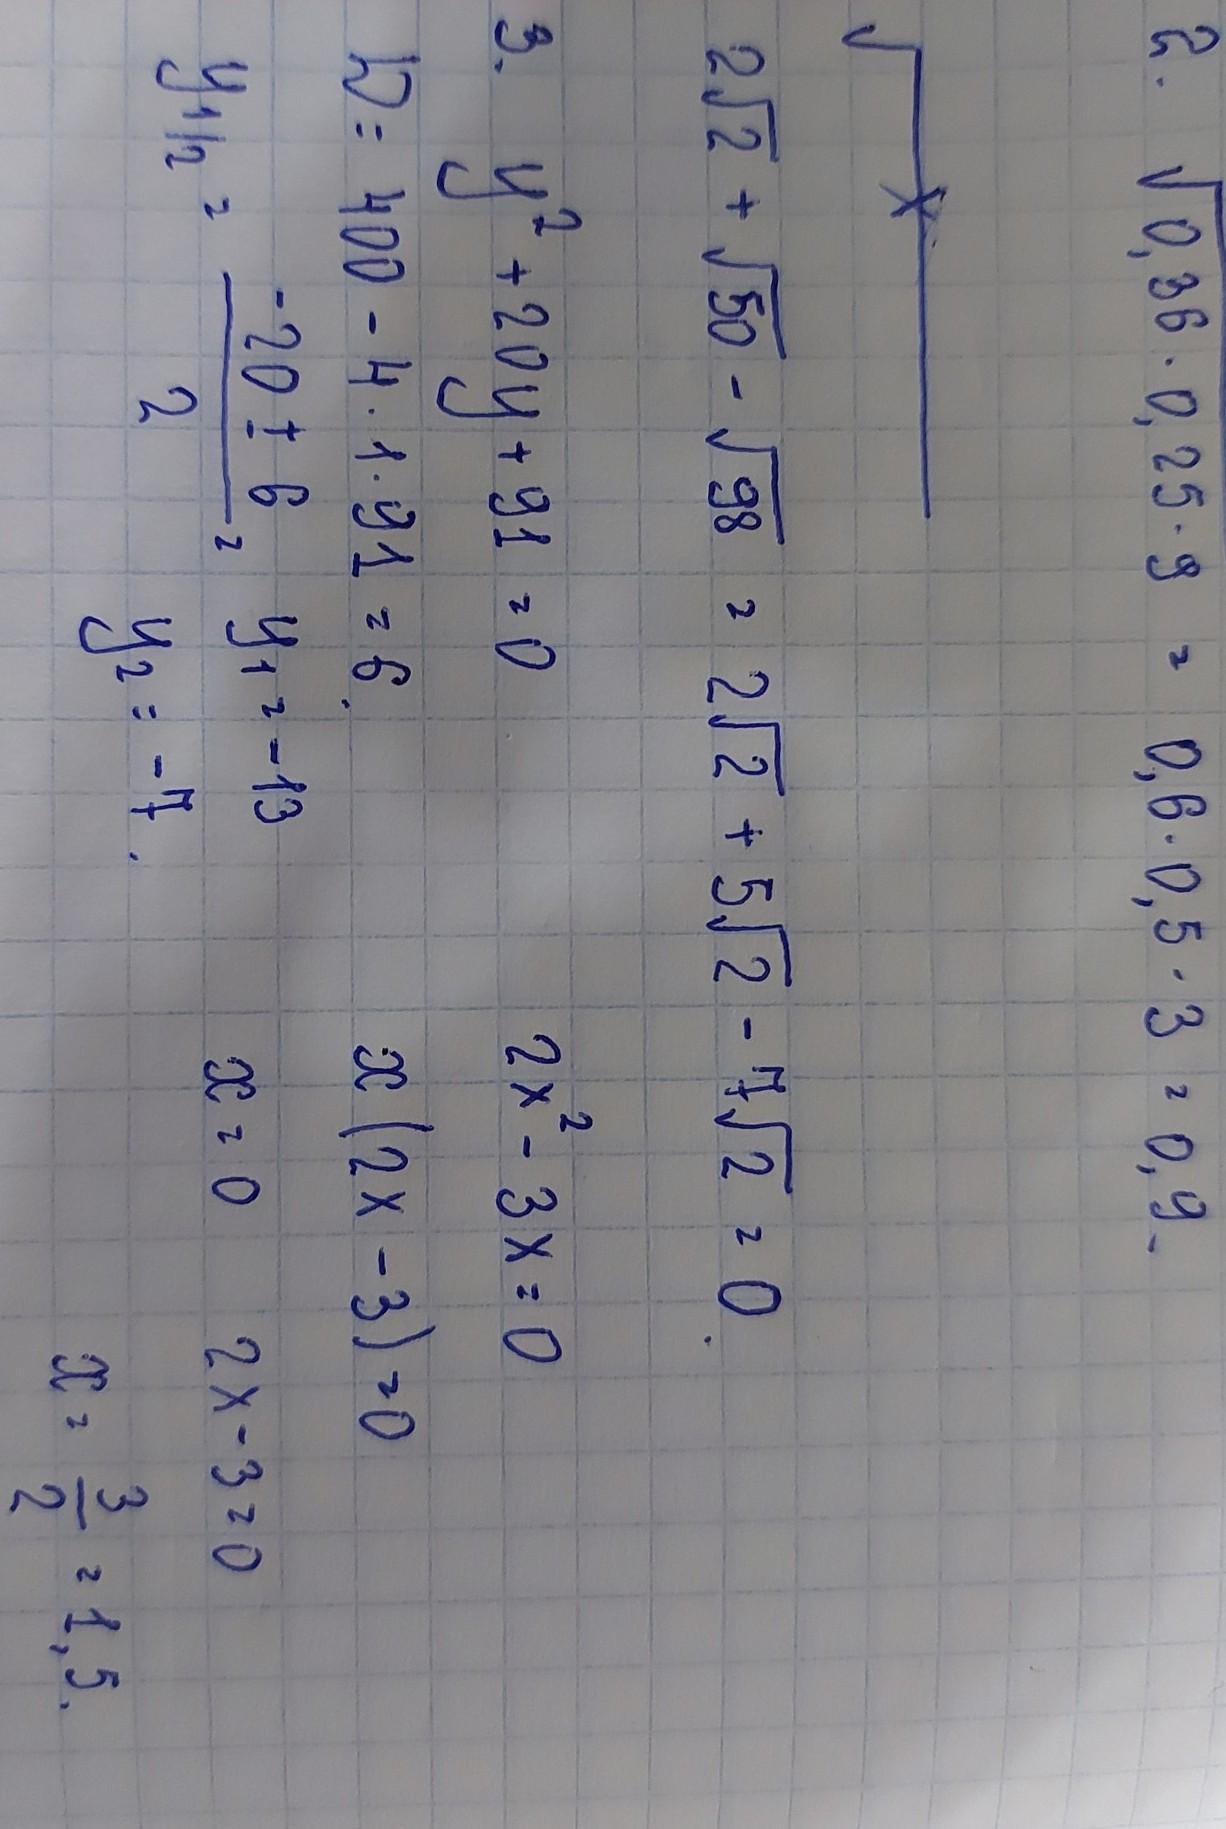 2. √0,36 · 0,25 · 9 = 0,6 · 0,5 · 3 = 0,9.
√ x
2√2 + √50 - √98 = 2√2 + 5√2 - 7√2 = 0.
3. y² + 20y + 91 = 0
D = 400 - 4 · 1 · 91 = 6.
y1/2 = (-20 ± 6)/2 = y₁ = -13
y₂ = -7.
2x² - 3x = 0
x(2x - 3) = 0
x = 0 2x - 3 = 0
x = 3/2 = 1,5.